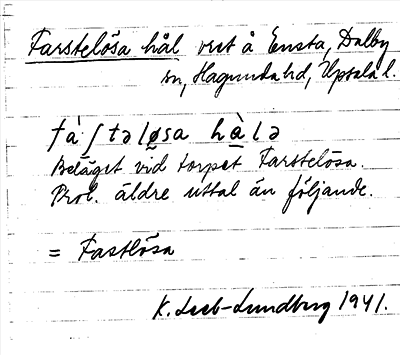 Farstelösa hål vret å Ensta, Dalby
sn, Hagunda hd, Uppsala l.
fà ʃtəløsa hàlə
Beläget vid torpet Farstelösa.
Prol. äldre uttal än följande.
= Fastlösa
K. Leeb-Lundberg 1941.